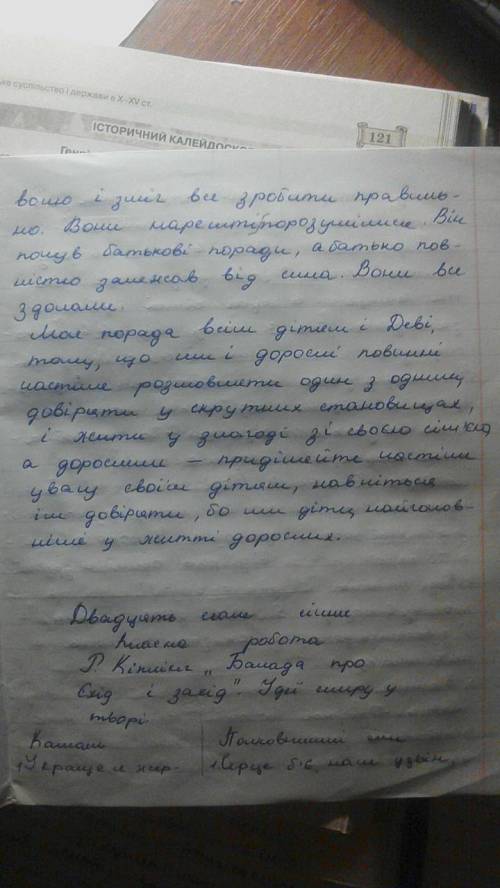 ке суспільство і держави в X–XV ст.
ІСТОРИЧНИЙ КАЛЕЙДОСКО
121
Генрі
волю і зміг все зробити правиль-
но. Вони нарешті порозумілися. Він
почув батькові поради, а батько пов-
ністю залежав від сина. Вони все
здолали.
Моя порада всім дітям і Деві,
тому, що ми і дорослі повинні
частіше розмовляти один з одним,
довіряти у скрутних становищах,
і жити у злагоді зі своєю сім'єю,
а дорослим – приділяйте частіш
увагу своїм дітям, навчіться
їм довіряти, бо ми діти, найголов-
ніше у житті дорослих.
Двадцять сьоме січня
Класна робота
Р. Кіплінг „Балада про
Схід і Захід". Ідеї миру у
творі.
Камаль
Полковницький син
1) Украще я жер-
1) Серце б'є наш